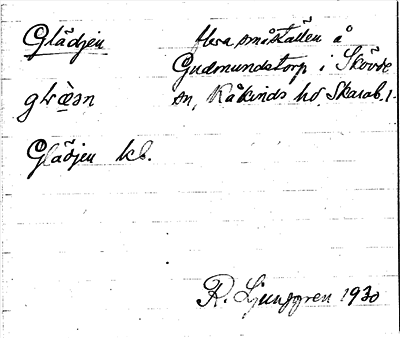 Glädjen flera småställen å
Gudmundstorp i Skövde
sn, Kåkinds hd. Skarab. l.
Glädjen kb.
R. Ljunggren 1930